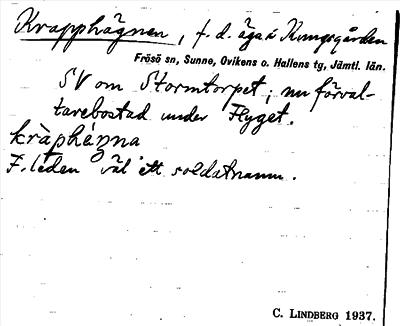 Krapphägnen, f. d. äga i Kungsgården
Frösö sn, Sunne, Ovikens o. Hallens tg, Jämtl. län.
SV om Stormtorpet; nu förval-
tarebostad under Flyget.
kràphéŋna
F. leden väl ett soldatnamn.
C. LINDBERG 1937.